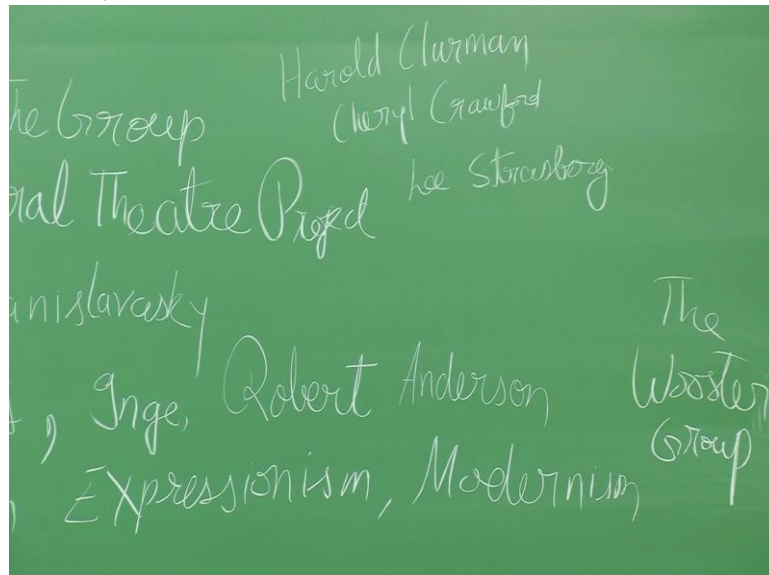 Harold Clurman
Cheryl Crawford
Lee Strasberg
he Group
ral Theatre Project
anislavasky
, Inge, Robert Anderson
, Expressionism, Modernism
The
Wooster
Group